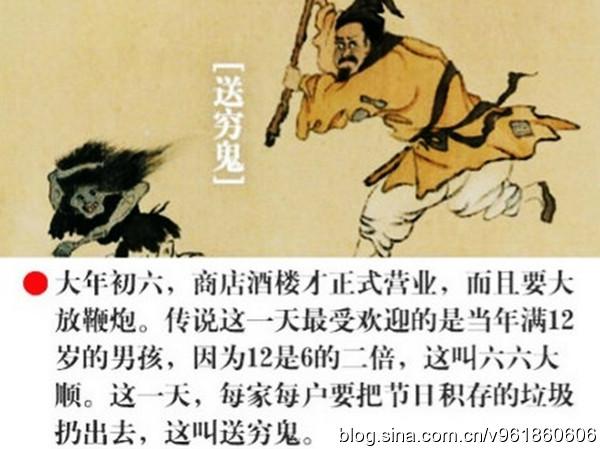 [送穷鬼]
大年初六，商店酒楼才正式营业，而且要大
放鞭炮。传说这一天最受欢迎的是当年满12
岁的男孩，因为12是6的二倍，这叫六六大
顺。这一天，每家每户要把节日积存的垃圾
扔出去，这叫送穷鬼。
blog.sina.com.cn/v961860606